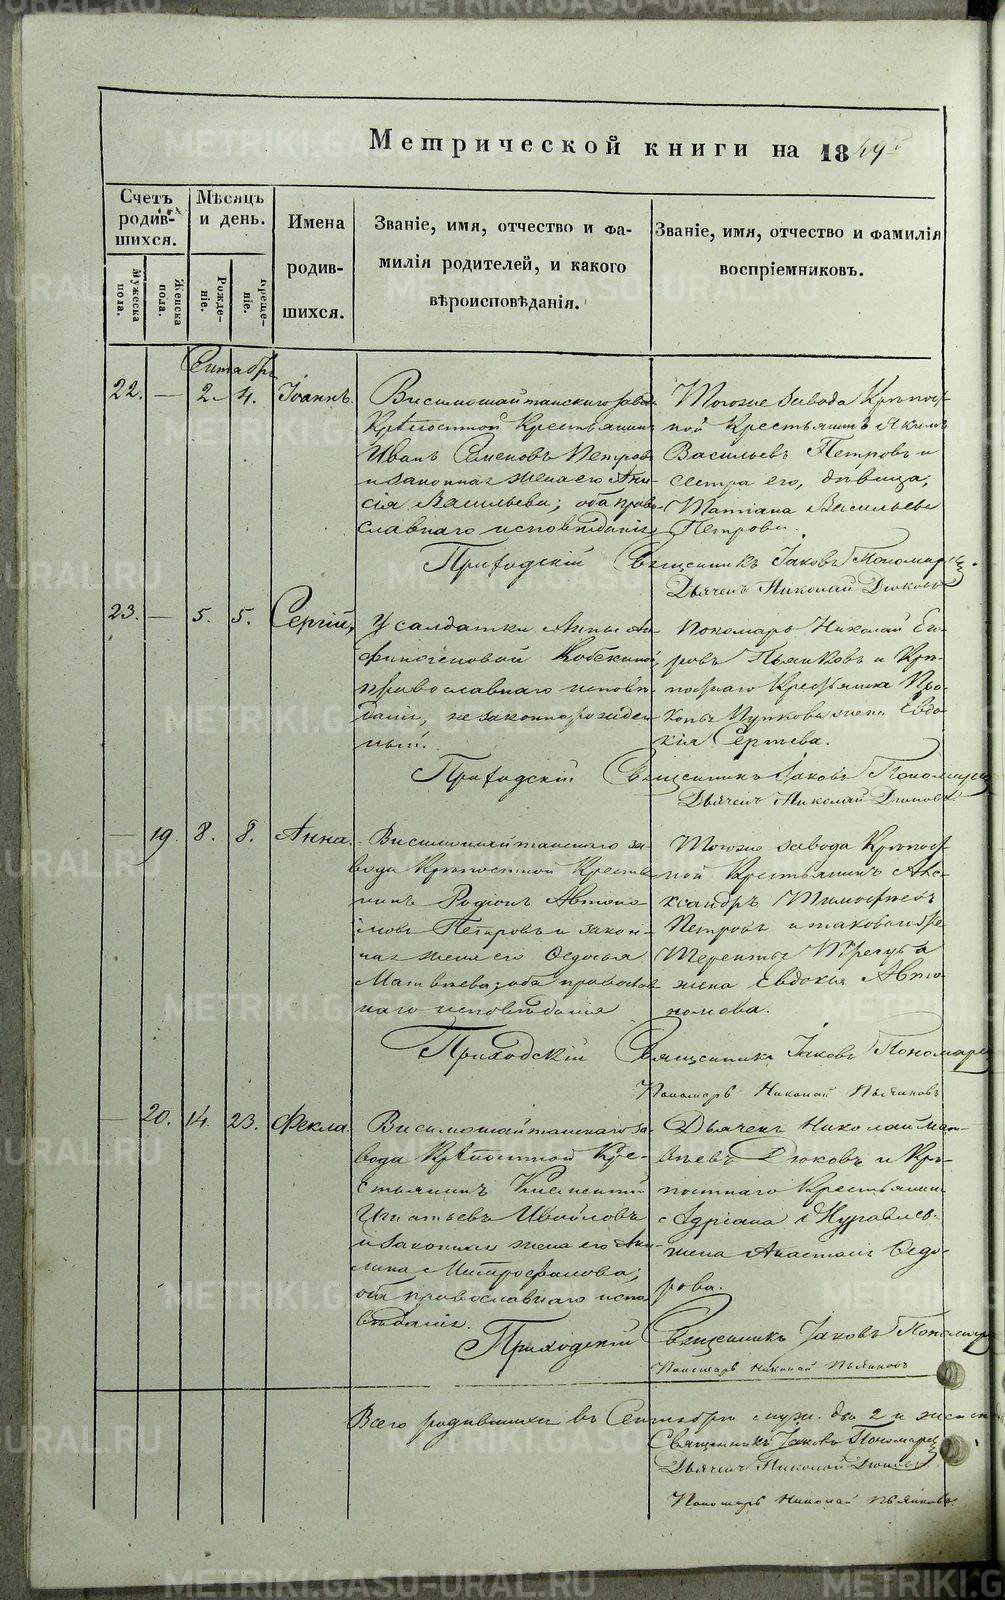 METRIKI.GASO-URAL.RU
Метрической книги на 1849
Счетъ родив-шихся.
Мѣсяцъ и день.
Имена родив-шихся.
Званіе, имя, отчество и фа-
милія родителей, и какого
вѣроисповѣданія.
Званіе, имя, отчество и фамилія
воспріемниковъ.
Мужеска пола.
Женска пола.
Рожде-ніе.
Креще-ніе.
Сентябрь
22. — 2. 4. Іоаннъ.
Висимошайтанскаго завода
Крѣпостной Крестьянинъ
Иванъ Семеновъ Петровъ
и законная жена его Ани-
сія Васильева; оба право-
славнаго исповѣданія
Тогоже завода Крѣпост-
ной Крестьянинъ Якимъ
Васильевъ Петровъ и
сестра его, дѣвица,
Татіана Васильева
Петрова.
Приходскій Священникъ Іаковъ Пономаревъ
Дьячекъ Николай Дюковъ
23. — 5. 5. Сергій,
У салдатки Анны Ан-
финогеновой
православнаго исповѣ-
данія, незаконнорожден-
ный.
Пономарь Николай Его-
ровъ Пьянковъ и Крѣ-
постнаго Крестьянина Про-
жена Евдо-
кія Сергѣева.
Приходскій Священникъ Іаковъ Пономаревъ
Дьячекъ Николай Дюковъ
— 19. 8. 8. Анна.
Висимошайтанскаго за-
вода Крѣпостной Кресть-
нинъ Родіонъ Автоно-
мовъ Петровъ и закон-
ная жена его Ѳедосья
Матвѣева; оба православ-
наго исповѣданія
Тогоже завода Крѣпост-
ной Крестьянинъ Але-
ксандръ Тимофѣевъ
Петровъ и таковагоже
Терентья Трегуба
жена Евдокія Авто-
номова.
Приходскій Священникъ Іаковъ Пономаревъ
Пономарь Николай Пьянковъ
— 20. 14. 23. Фекла.
Висимошайтанскаго за-
вода Крѣпостной Кре-
стьянинъ Климентій
Игнатьевъ Ивойловъ
и законная жена его Аку-
лина Митрофанова;
оба православнаго испо-
вѣданія.
Дьячекъ Николай Мат-
вѣевъ Дюковъ и Крѣ-
постнаго Крестьянина
Адріана Журавлева
жена Анастасія Ѳедо-
рова.
Приходскій Священникъ Іаковъ Пономаревъ
Пономарь Николай Пьянковъ
Всего родившихся въ Сентябрѣ муж. 2 и женск
Священникъ Іаковъ Пономаревъ
Дьячекъ Николай Дюковъ
Пономарь Николай Пьянковъ.